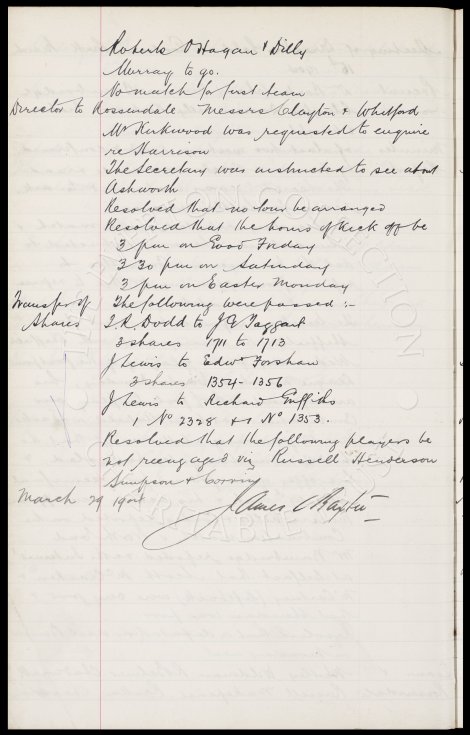 Roberts O'Hagan & Dilly
Murray to go.
No match for first team
Director to Rossendale Messrs Clayton & Whitford
Mr Kirkwood was requested to enquire
re Harrison
The Secretary was instructed to see about
Ashworth
Resolved that no tour be arranged
Resolved that the hours of Kick off be
3 pm on Good Friday
3 30 pm on Saturday
3 pm on Easter Monday
Transfer of The following were passed :-
Shares T. R. Dodd to J G Taggart
3 shares 1711 to 1713
J Lewis to Edwd Forshaw
3 shares 1354 - 1356
J Lewis to Richard Griffiths
1 No 2328 & 1 No 1353.
Resolved that the following players be
not reengaged viz Russell Henderson
Simpson & Corrin
March 29 1904 James C Baxter